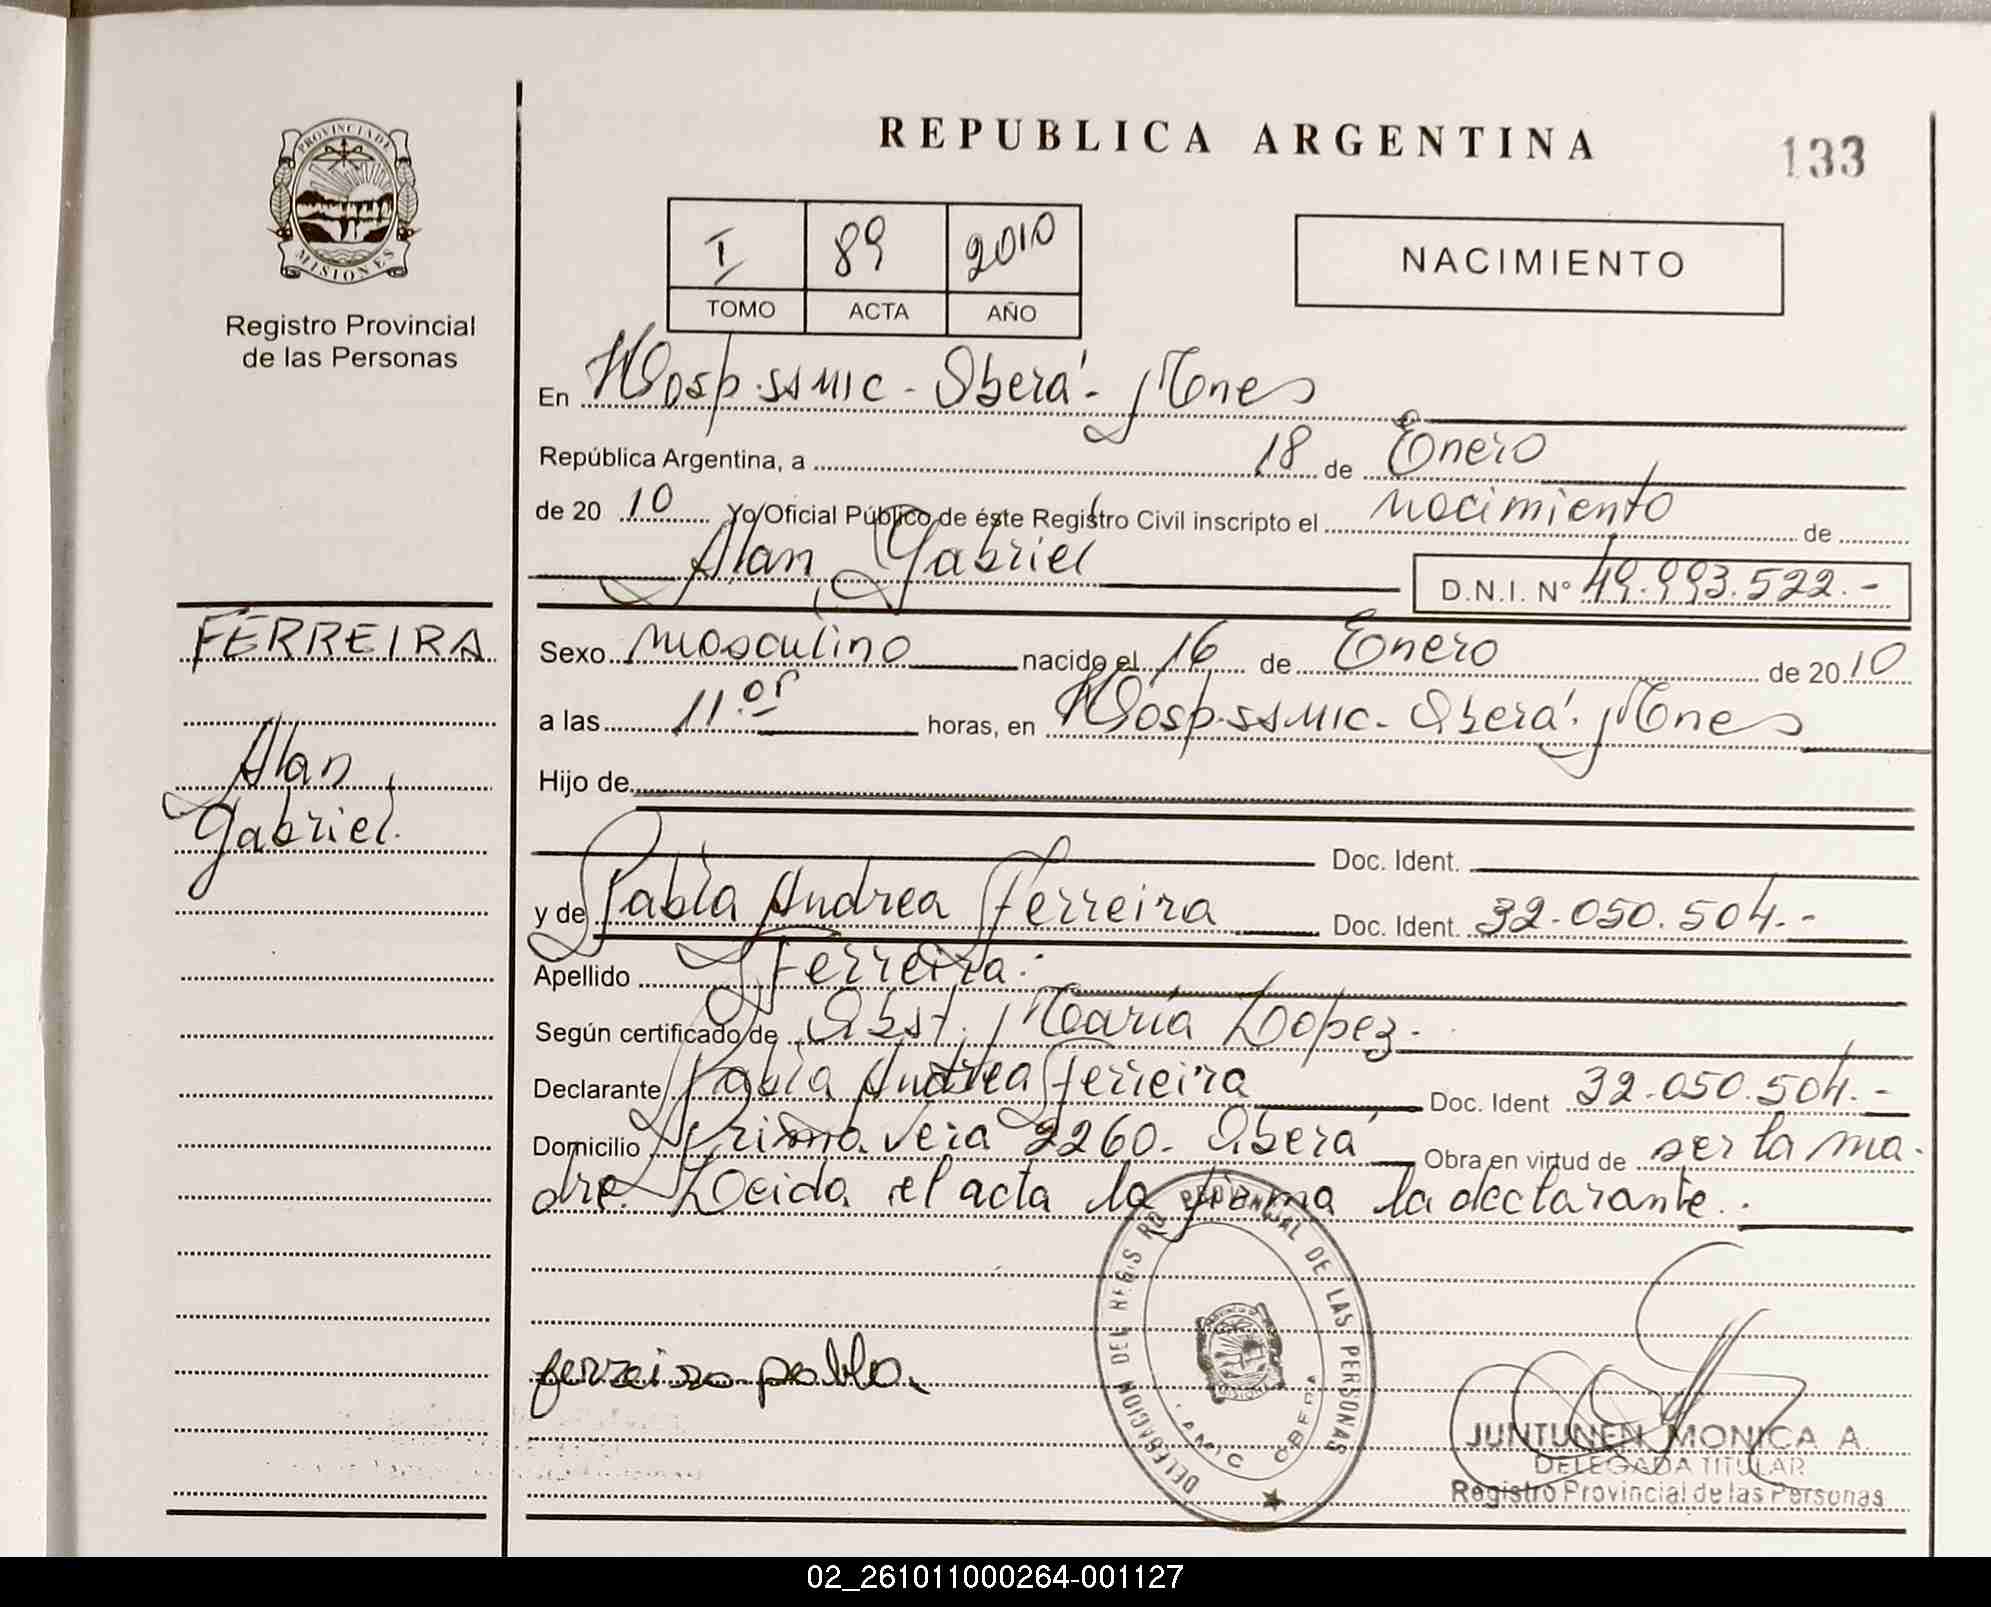 PROVINCIA DE
MISIONES
Registro Provincial
de las Personas
FERREIRA
Alan
Gabriel.
REPUBLICA ARGENTINA
133
I 89 2010
TOMO ACTA AÑO
NACIMIENTO
En Hosp. SSMIC - Oberá - Mones
República Argentina, a 18 de Enero
de 2010 Yo Oficial Público de éste Registro Civil inscripto el nacimiento de
Alan Gabriel D.N.I. Nº 49.993.522.-
Sexo masculino nacido el 16 de Enero de 2010
a las 11.05 horas, en Hosp. SSMIC - Oberá. Mones
Hijo de
Doc. Ident.
y de Pabla Andrea Ferreira Doc. Ident. 32.050.504.-
Apellido Ferreira.-
Según certificado de Obst. María Lopez.-
Declarante Pabla Andrea Ferreira Doc. Ident 32.050.504.-
Domicilio Primavera 2260 - Oberá Obra en virtud de ser la ma-
dre. Leida el acta la firma la declarante.-
ferreira pabla.
DELEGACION DEL REGISTRO PROVINCIAL DE LAS PERSONAS
OBERA
JUNTUNEN MONICA A.
DELEGADA TITULAR
Registro Provincial de las Personas
02_261011000264-001127